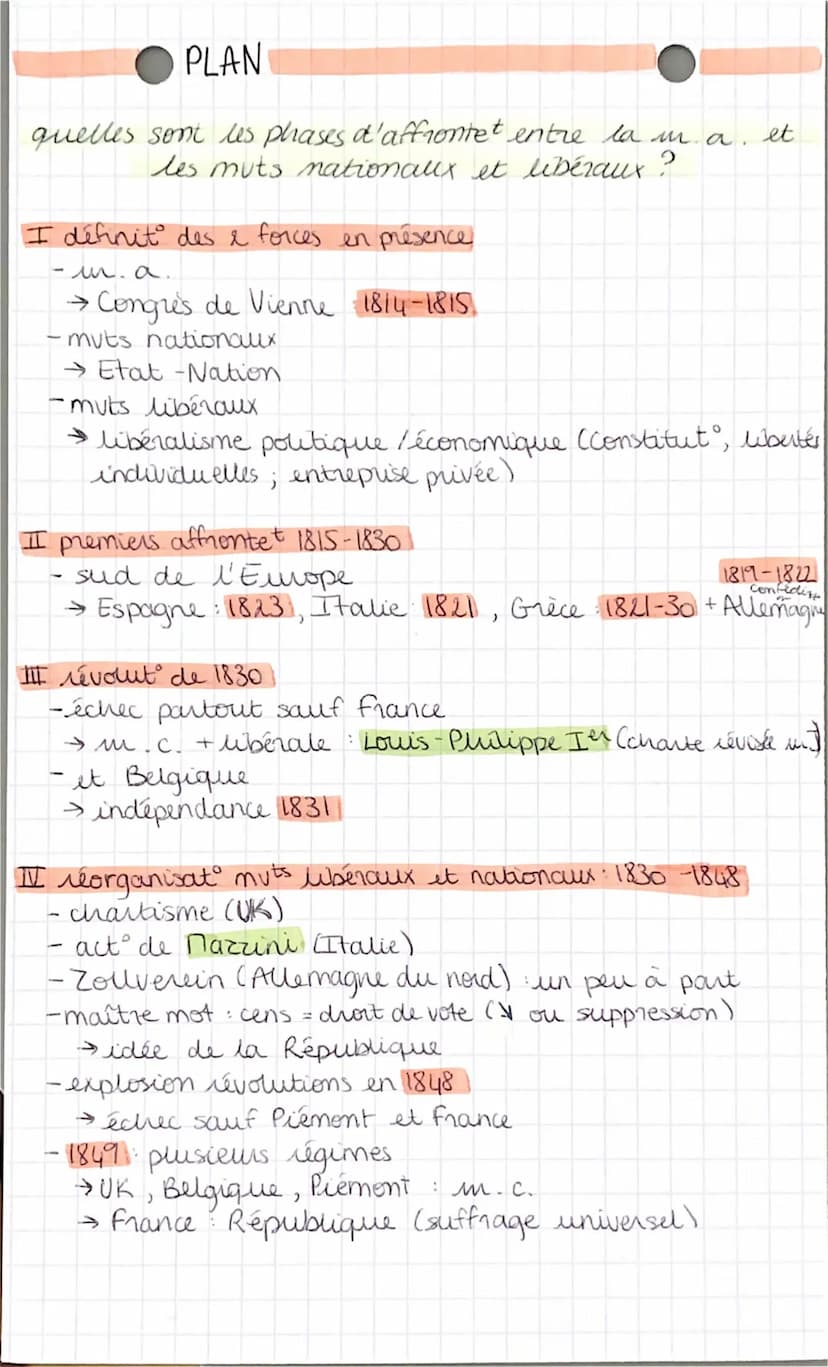 PLAN
quelles sont les phases d'affrontet entre la m.a. et
les mvts nationaux et libéraux ?
I définit° des 2 forces en présence
- m.a.
→ Congrès de Vienne 1814-1815
- mvts nationaux
→ Etat-Nation
- mvts libéraux
→ libéralisme politique / économique (Constitut°, libertés
individuelles ; entreprise privée)
II premiers affrontet 1815-1830
- sud de l'Europe
1819-1822
→ Espagne : 1823, Italie 1821, Grèce : 1821-30 + Allemagne
III révolut° de 1830
- échec partout sauf France
→ m.c. + libérale : Louis-Philippe Ier (charte révisée
- et Belgique
→ indépendance 1831
IV réorganisat° mvts libéraux et nationaux : 1830 - 1848
- chartisme (UK)
- act° de Mazzini (Italie)
- Zollverein (Allemagne du nord) : un peu à part
- maître mot : cens = droit de vote (↘ ou suppression)
→ idée de la République
- explosion révolutions en 1848
→ échec sauf Piémont et France
- 1849 : plusieurs régimes
→ UK, Belgique, Piémont : m.c.
→ France : République (suffrage universel)